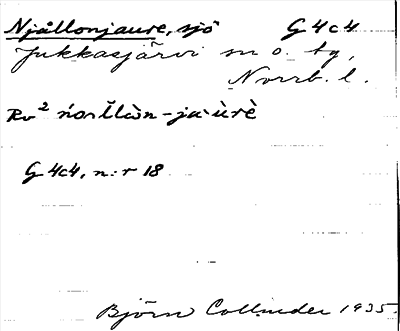 Njållonjaure, sjö G 4 c 4
Jukkasjärvi sn o. tg,
Norrb. l.
Rv²
G 4c4, n:r 18
Björn Collinder 1935.